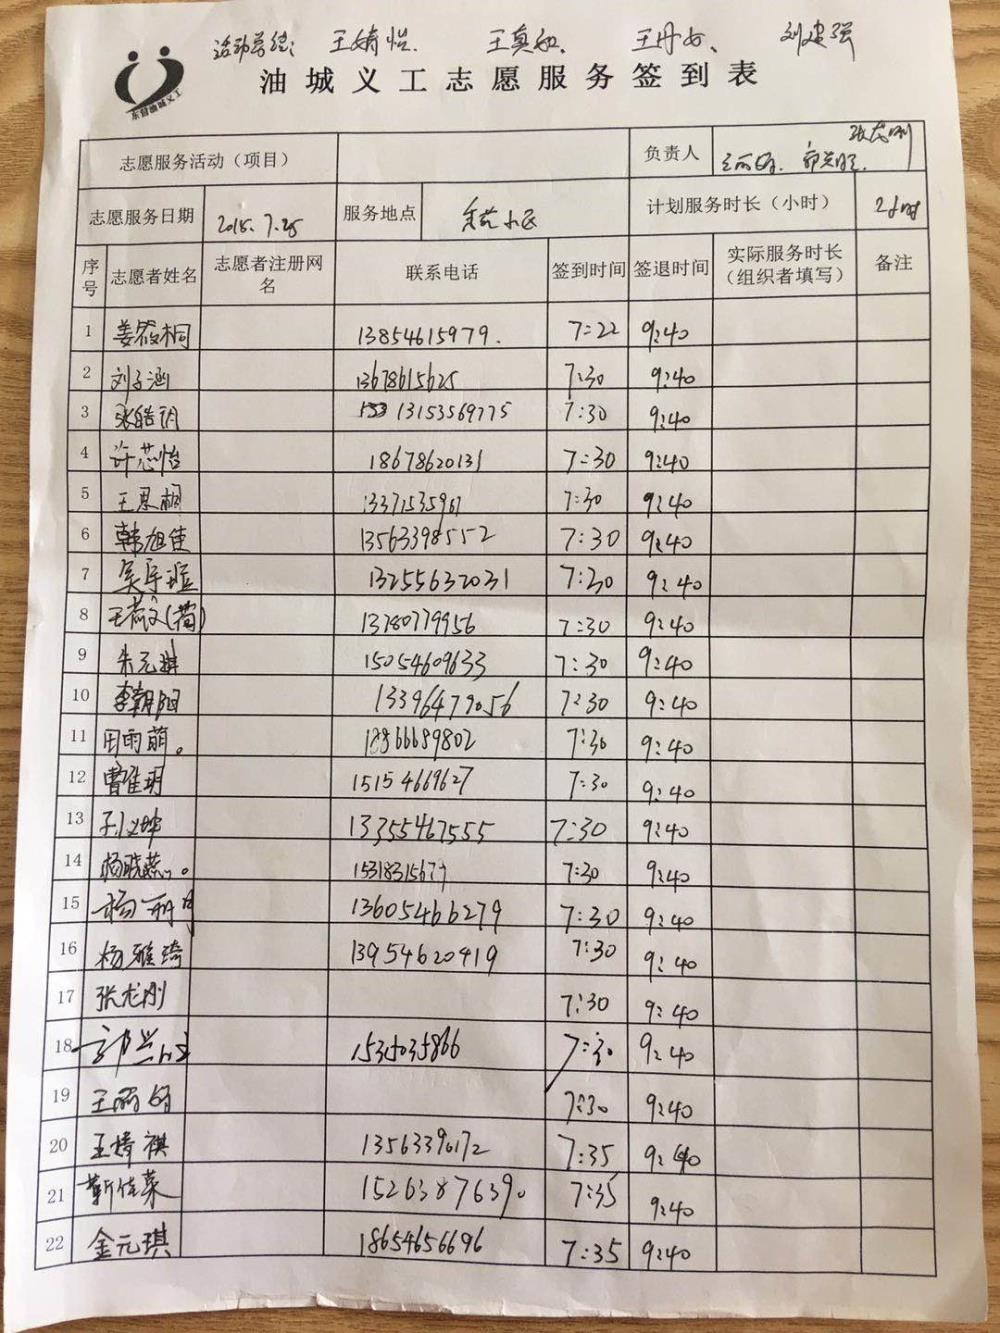 活动总结: 王婧怡. 王真如. 王丹如、 刘建强
油城义工志愿服务签到表
东营油城义工
志愿服务活动（项目） 负责人 张龙刚
王丽娟. 郭兴旺.
志愿服务日期 2015.7.25 服务地点 小区 计划服务时长（小时） 2小时
序号 志愿者姓名 志愿者注册网名 联系电话 签到时间 签退时间 实际服务时长（组织者填写） 备注
1 姜筱桐 13854615979. 7:22 9:40
2 刘子涵 13678615625 7:30 9:40
3 张皓玥 13153569775 7:30 9:40
4 许芯怡 18678620131 7:30 9:40
5 王思桐 13371535961 7:30 9:40
6 韩旭佳 13563398552 7:30 9:40
7 13255632031 7:30 9:40
8 13780779956 7:30 9:40
9 朱元琪 15054609633 7:30 9:40
10 李朝阳 13396479056 7:30 9:40
11 田雨萌。 18866689802 7:30 9:40
12 曹淮玥 15154669627 7:30 9:40
13 孙义坤 13355467555 7:30 9:40
14 杨晓燕。 7:30 9:40
15 杨 13605466279 7:30 9:40
16 杨雅琦 13954620419 7:30 9:40
17 张龙刚 7:30 9:40
18 郭兴旺 15315035866 7:30 9:40
19 王丽娟 7:30 9:40
20 王烯祺 13563396172 7:35 9:40
21 靳佳菜 15263876390 7:35 9:40
22 金元琪 18654656696 7:35 9:40